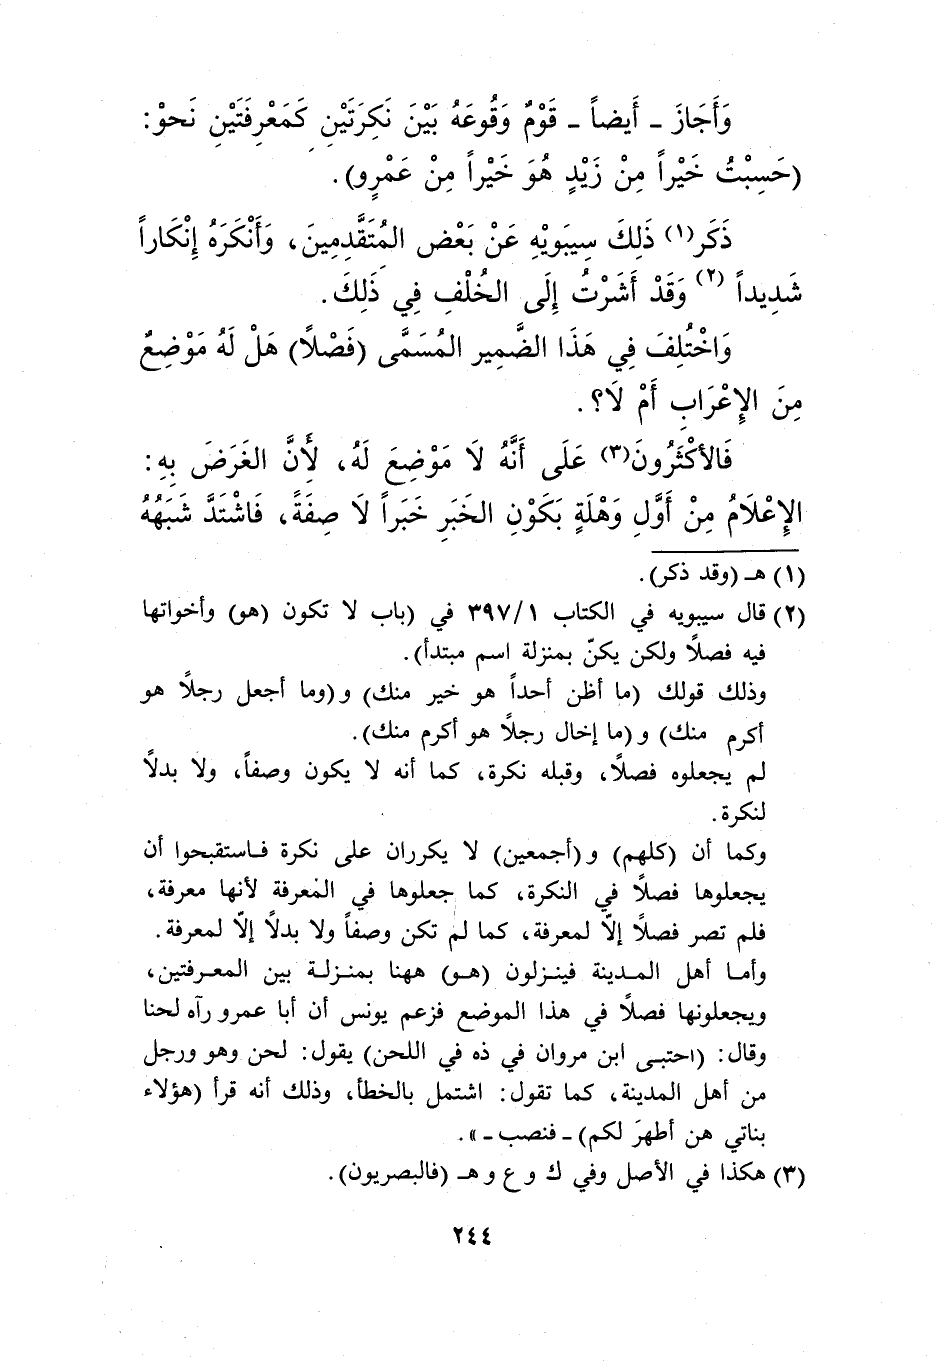 وَأَجَازَ - أَيضاً - قَوْمٌ وَقُوعَهُ بَيْنَ نَكِرَتَيْنِ كَمَعْرِفَتَيْنِ نَحوْ:
(حَسِبْتُ خَيْراً مِنْ زَيْدٍ هُوَ خَيْراً مِنْ عَمْرٍو).
ذَكَر(١) ذَلِكَ سِيبَوَيْهِ عَنْ بَعْضِ المُتَقَّدِمِينَ، وَأَنْكَرَهُ إِنْكَاراً
شَدِيداً (٢) وَقَدْ أَشَرْتُ إِلَى الخُلْفِ فِي ذَلِكَ.
وَاخْتُلِفَ فِي هَذَا الضَّمِيرِ المُسَمَّى (فَصْلاً) هَلْ لَهُ مَوْضِعٌ
مِنَ الإِعْرَابِ أَمْ لَا؟.
فَالأكْثَرُونَ(٣) عَلَى أَنَّهُ لَا مَوْضِعَ لَهُ، لأَنَّ الغَرَضَ بِهِ:
الإِعْلَامُ مِنْ أَوَّلِ وَهْلَةٍ بِكَوْنِ الخَبَرِ خَبَراً لَا صِفَةً، فَاشْتَدَّ شَبَهُهُ
(١) هـ (وقد ذكر).
(٢) قال سيبويه في الكتاب ٣٩٧/١ في (باب لا تكون (هو) وأخواتها
فيه فصلاً ولكن يكنّ بمنزلة اسم مبتدأ).
وذلك قولك (ما أظن أحداً هو خير منك) و (وما أجعل رجلاً هو
أكرم منك) و (ما إخال رجلاً هو أكرم منك).
لم يجعلوه فصلاً، وقبله نكرة، كما أنه لا يكون وصفاً، ولا بدلاً
لنكرة.
وكما أن (كلهم) و (أجمعين) لا يكرران على نكرة فاستقبحوا أن
يجعلوها فصلاً في النكرة، كما جعلوها في المعرفة لأنها معرفة،
فلم تصر فصلاً إلّا لمعرفة، كما لم تكن وصفاً ولا بدلاً إلّا لمعرفة.
وأما أهل المدينة فينزلون (هو) ههنا بمنزلة بين المعرفتين،
ويجعلونها فصلاً في هذا الموضع فزعم يونس أن أبا عمرو رآه لحنا
وقال: (احتبى ابن مروان في ذه في اللحن) يقول: لحن وهو ورجل
من أهل المدينة، كما تقول: اشتمل بالخطأ، وذلك أنه قرأ (هؤلاء
بناتي هن أطهرَ لكم) - فنصب -».
(٣) هكذا في الأصل وفي ك و ع و هـ (فالبصريون).
٢٤٤